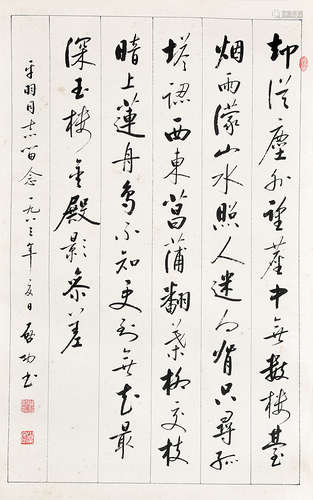 却從塵外望塵中無數樓臺
烟雨濛山水照人迷向背只尋孤
塔認西東菖蒲翻葉柳交枝
暗上蓮舟鳥不知更到無花最
深玉樓金殿影參差
平羽同志留念一九八三年夏日啟功書